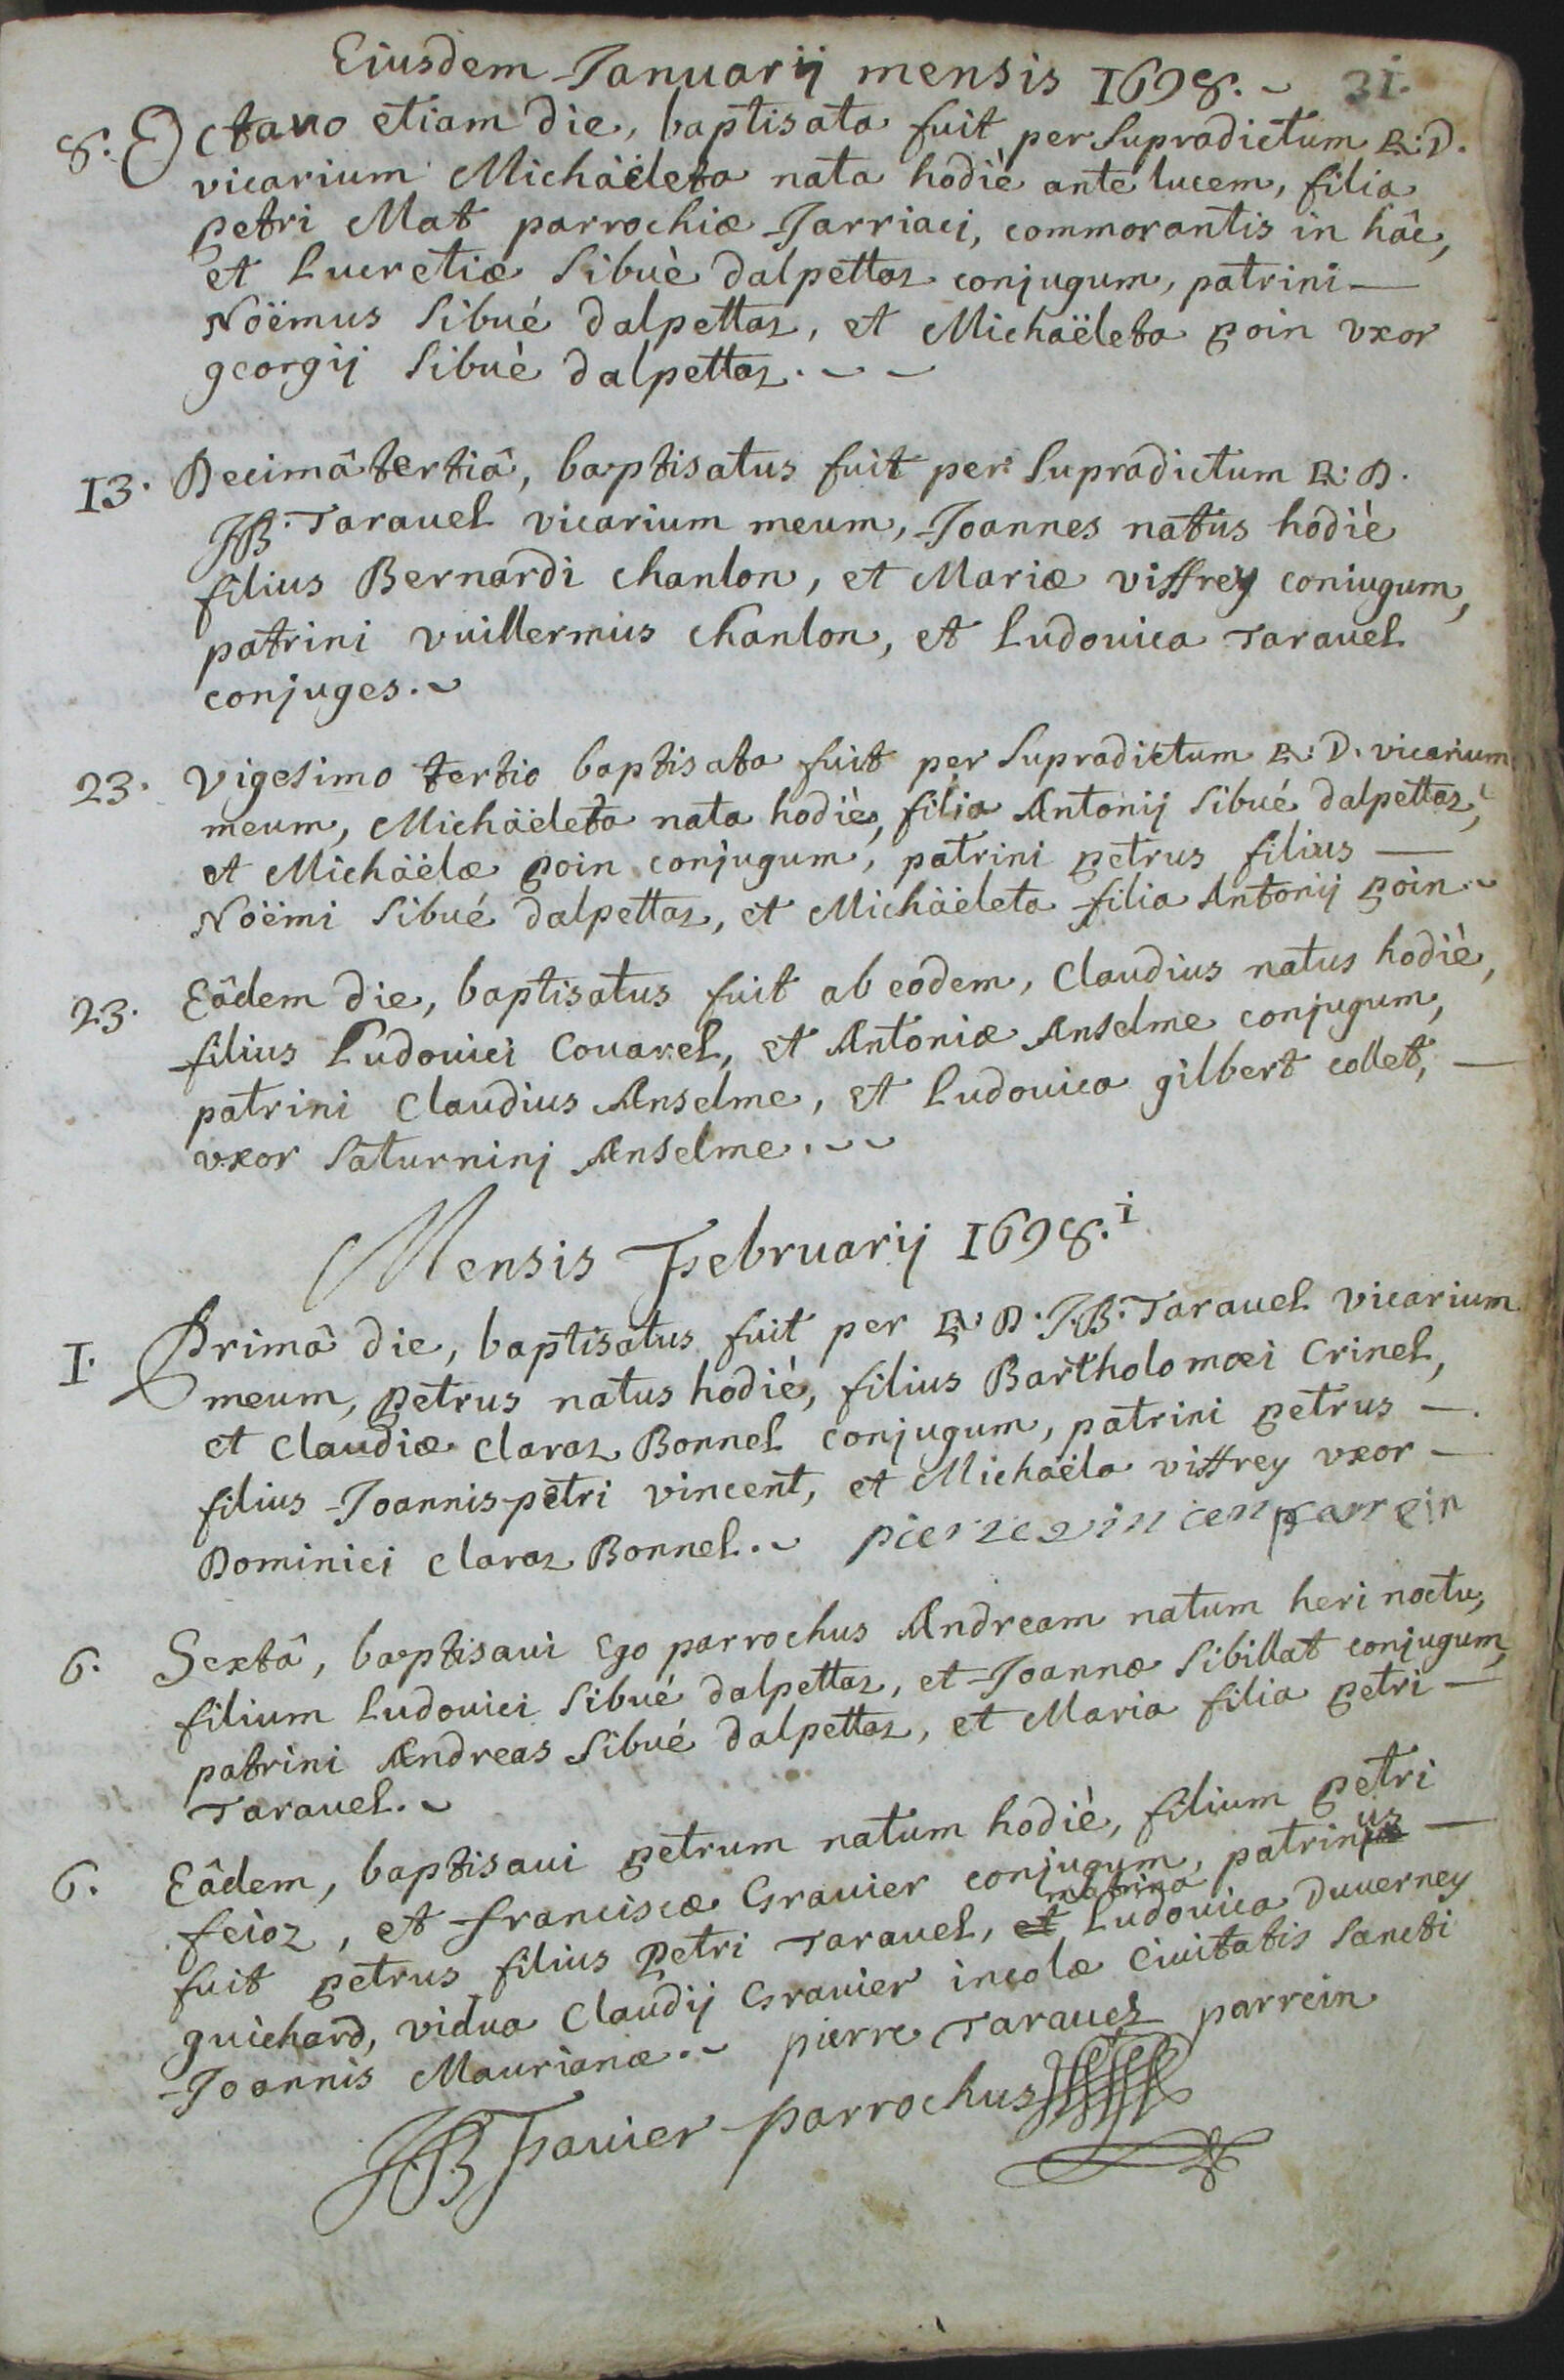 Eiusdem Januarij mensis 1698. 31.
8. Octavo etiam die, baptisata fuit per supradictum R: D.
vicarium Michäeleta nata hodiè ante lucem, filia
petri Mat parrochiæ Jarriaci, commorantis in hâc,
et Lucretiæ Sibuè dalpettaz conjugum, patrini —
Nöëmus Sibué dalpettaz, et Michaëleta poin vxor
georgij Sibuè dalpettaz.
13. Decimâ tertiâ, baptisatus fuit per supradictum R: D.
JB. Tarauel vicarium meum, Joannes natus hodiè
filius Bernardi chanlon, et Mariæ viffrey coniugum,
patrini vuillermus chanlon, et Ludouica Tarauel
conjuges.
23. Vigesimo tertio baptisata fuit per supradictum R: D. vicarium
meum, Michäeleta nata hodiè, filia Antonij Sibué dalpettaz,
et Michäëlæ poin conjugum, patrini petrus filius —
Nöëmi Sibué dalpettaz, et Michäëleta filia Antonij poin
23. Eâdem die, baptisatus fuit ab eodem, Claudius natus hodiè,
filius Ludouici Couarel, et Antoniæ Anselme conjugum,
patrini Claudius Anselme, et Ludouica gilbert collet, —
vxor Saturninj Anselme.
Mensis Februarij 1698.i
I. Primâ die, baptisatus fuit per R: D. J.B. Tarauel vicarium
meum, petrus natus hodiè, filius Bartholomæi Crinel,
et Claudiæ claraz Bonnel conjugum, patrini petrus —
filius Joannis-petri vincent, et Michaëla viffrey vxor —
Dominici claraz Bonnel. pierre vincen parrein
6. Sextâ, baptisaui Ego parrochus Andream natum heri noctu,
filium Ludouici Sibué dalpettaz, et Joannæ Sibillat conjugum,
patrini Andreas Sibué dalpettaz, et Maria filia petri —
Tarauel.
6. Eâdem, baptisaui petrum natum hodiè, filium petri
feioz, et franciscæ Grauier conjugum, patrinus —
fuit petrus filius Petri Tarauel, et matrina Ludouica duuerney
guichard, vidua Claudij Grauier incolæ Ciuitatis Sancti
Joannis Maurianæ. pierre Tarauel parrein
JB Fauier parrochus